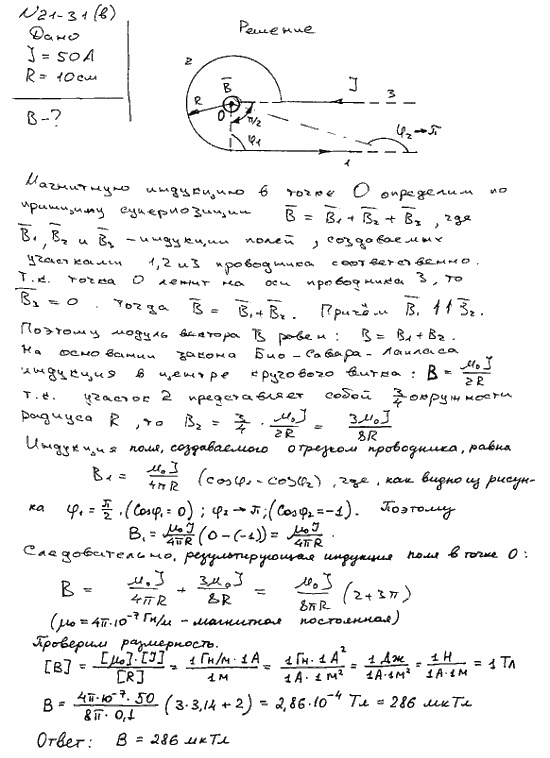 N21-31(в)
Дано
J = 50A
R = 10см
B-?
Решение
2
B̅
J
3
R
O
π/2
φ₁
φ₂→π
1
Магнитную индукцию в точке O определим по
принципу суперпозиции B̅ = B̅₁ + B̅₂ + B̅₃, где
B̅₁, B̅₂ и B̅₃ - индукции полей, создаваемых
участками 1,2 и 3 проводника соответственно.
Т.к. точка O лежит на оси проводника 3, то
B̅₃ = 0. Тогда B̅ = B̅₁ + B̅₂. Причём B̅₁ ↑↑ B̅₂.
Поэтому модуль вектора B̅ равен: B = B₁ + B₂.
На основании закона Био-Савара-Лапласа
индукция в центре кругового витка: B = μ₀J/2R
т.к. участок 2 представляет собой 3/4 окружности
радиуса R, то B₂ = 3/4 · μ₀J/2R = 3μ₀J/8R
Индукция поля, создаваемого отрезком проводника, равна
B₁ = μ₀J/4πR (cosφ₁ - cosφ₂), где, как видно из рисун-
ка φ₁ = π/2, (cosφ₁ = 0); φ₂ → π; (cosφ₂ = -1). Поэтому
B₁ = μ₀J/4πR (0-(-1)) = μ₀J/4πR.
Следовательно, результирующая индукция поля в точке O:
B = μ₀J/4πR + 3μ₀J/8R = μ₀J/8πR (2+3π)
(μ₀ = 4π·10⁻⁷ Гн/м - магнитная постоянная)
Проверим размерность.
[B] = [μ₀]·[J]/[R] = 1Гн/м·1A/1м = 1Гн·1A²/1A·1м² = 1Дж/1A·1м² = 1Н/1A·1м = 1Тл
B = 4π·10⁻⁷·50/8π·0,1 (3·3,14+2) = 2,86·10⁻⁴ Тл = 286 мкТл
Ответ: B = 286 мкТл